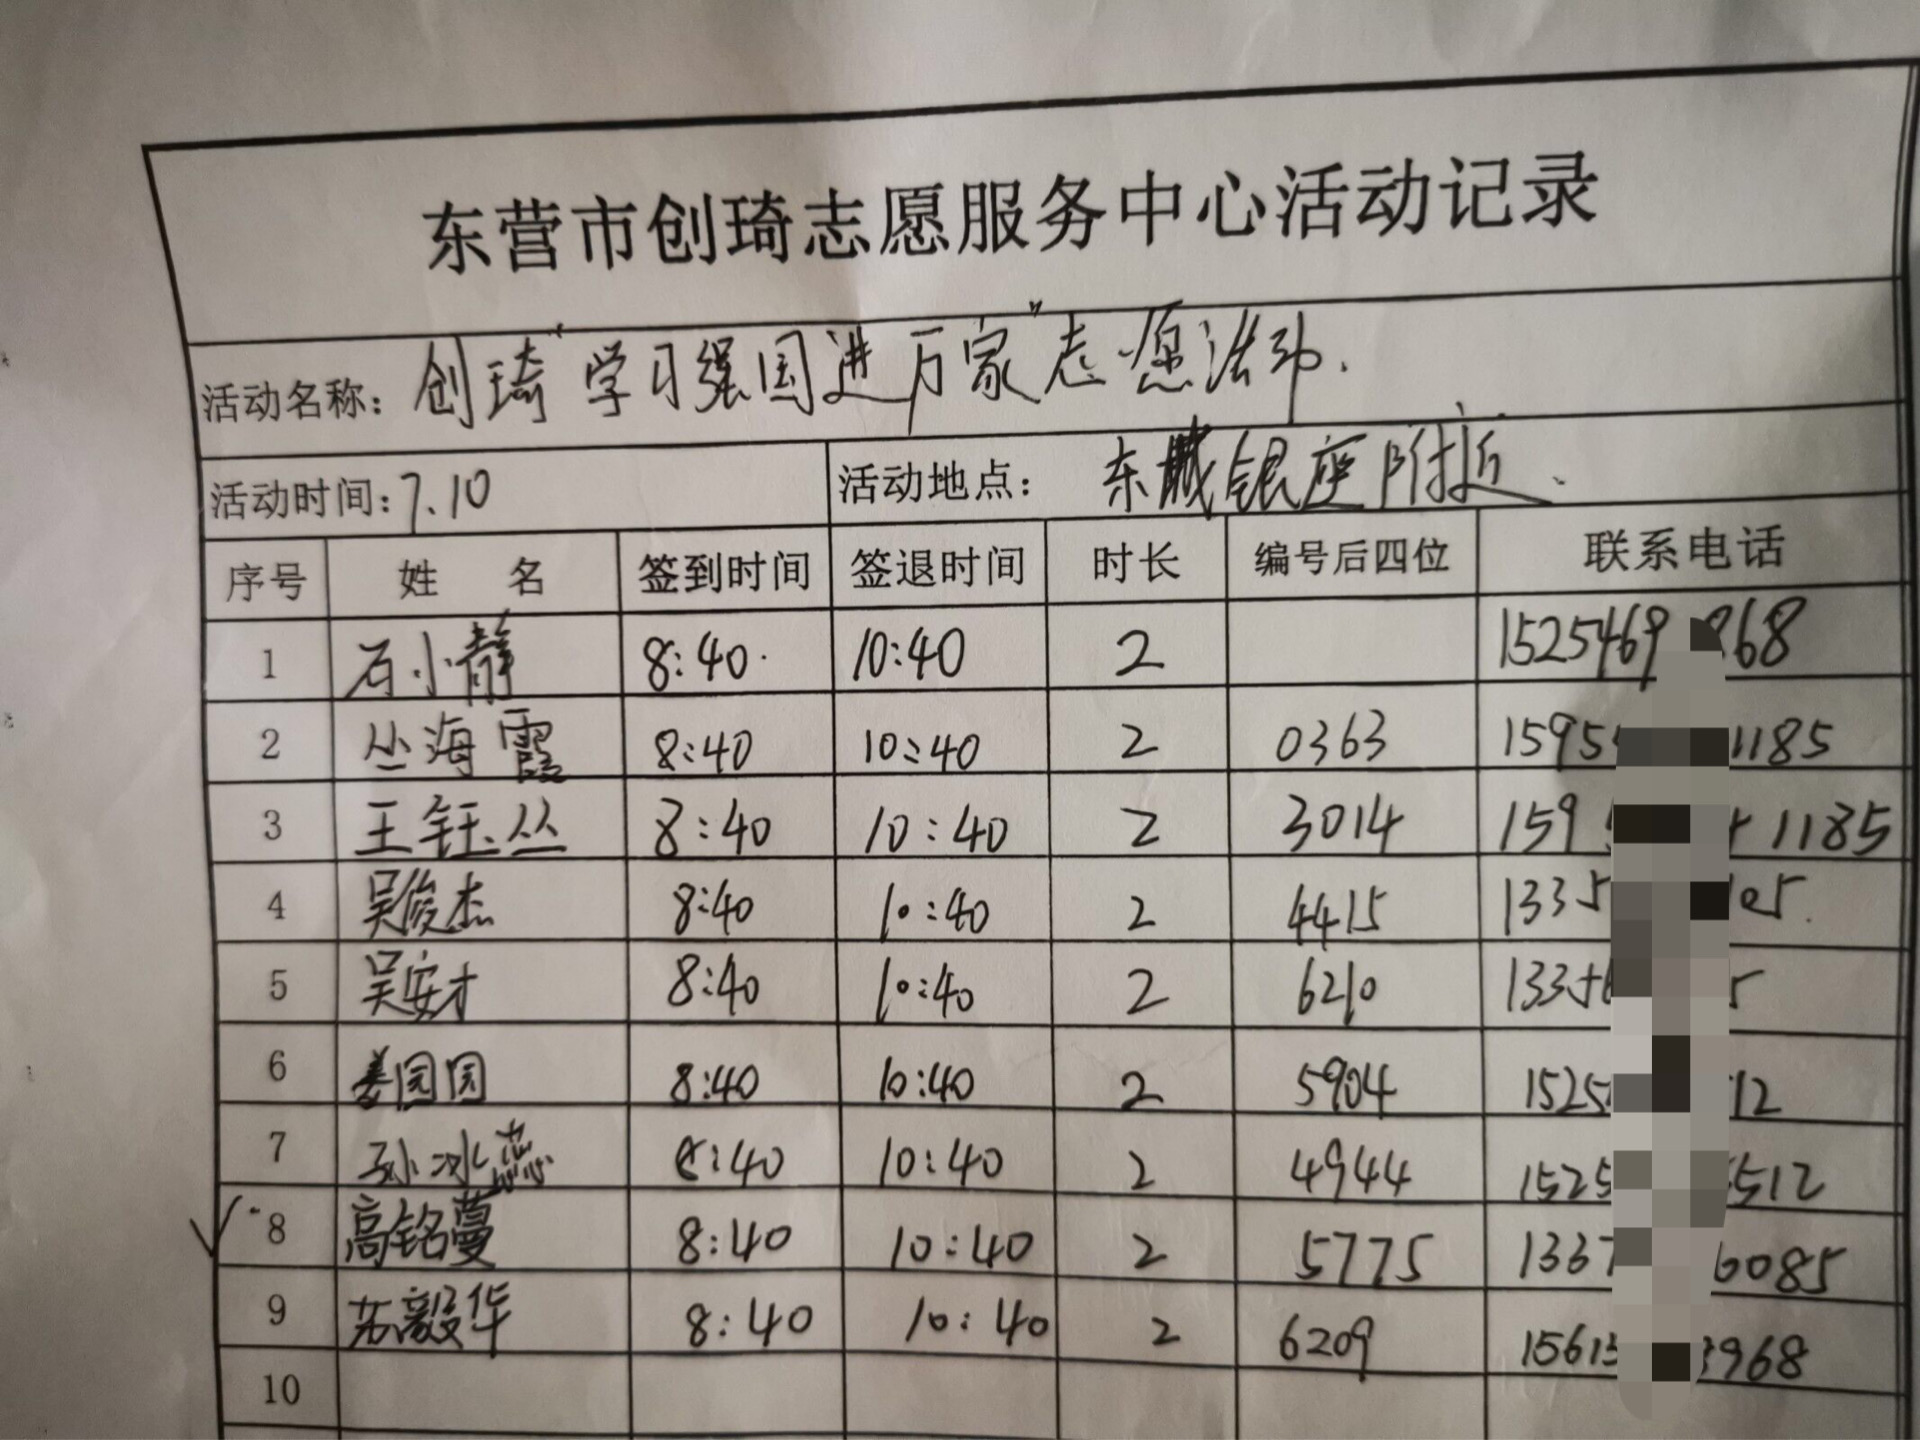 东营市创琦志愿服务中心活动记录
活动名称：创琦“学习强国进万家”志愿活动.
活动时间：7.10 活动地点：东城银座附近.
序号 姓 名 签到时间 签退时间 时长 编号后四位 联系电话
1 石小静 8:40 10:40 2 1525469 868
2 丛海霞 8:40 10:40 2 0363 1595 1185
3 王钰丛 8:40 10:40 2 3014 159 1185
4 吴俊杰 8:40 10:40 2 4415 1335 105.
5 吴安才 8:40 10:40 2 6210 13356 5
6 园园 8:40 10:40 2 5904 1525 12
7 孙冰蕊 8:40 10:40 2 4944 1525 5512
8 高铭蔓 8:40 10:40 2 5775 1337 6085
9 苏毅华 8:40 10:40 2 6209 15615 3968
10